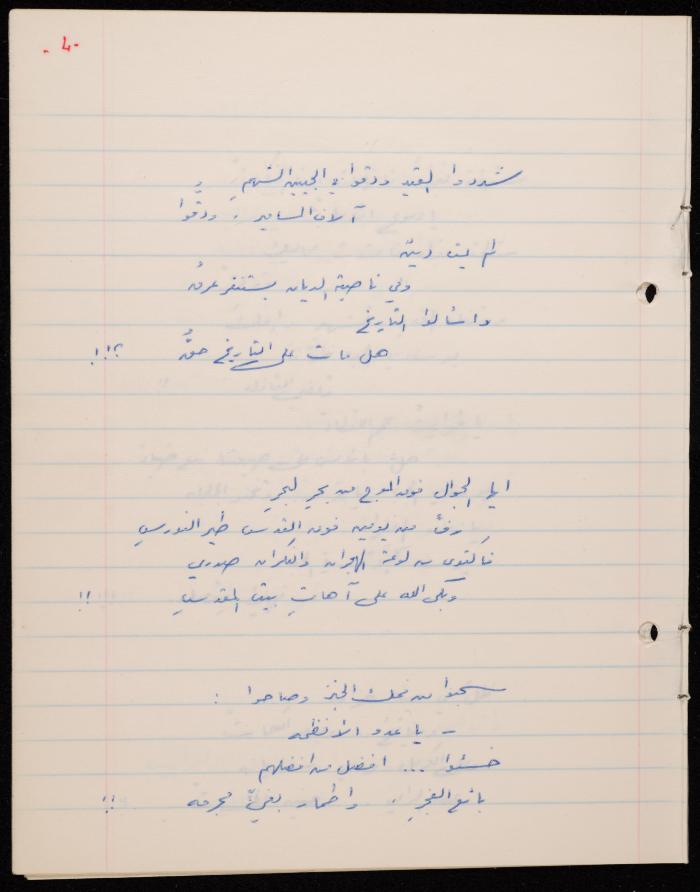 -٤-
شددوا القيد ودقوا في الجبين الشهم
آلاف المسامير، ودقوا
لم يمت دينٌ
وفي ناصية الديان يستنفر عرقُ
واسألوا التاريخ
هل مات على التاريخ حقُّ ؟!!
ايها الجوال فوق الموج من بحرٍ لبحرِ
رفَّ من يومين فوق القدس طير النورسِ
فاكتوى من لوعة الهجران والنكران صدري
وبكى الله على آهاتِ بيت المقدسِ !!
سحبوا من فمك الخبز وصاحوا :
- يا عدو الأنظمه
خسئوا ... افضل من افضلهم
بائع الفجرِ، واطمار بغيٍّ مجرمه !!